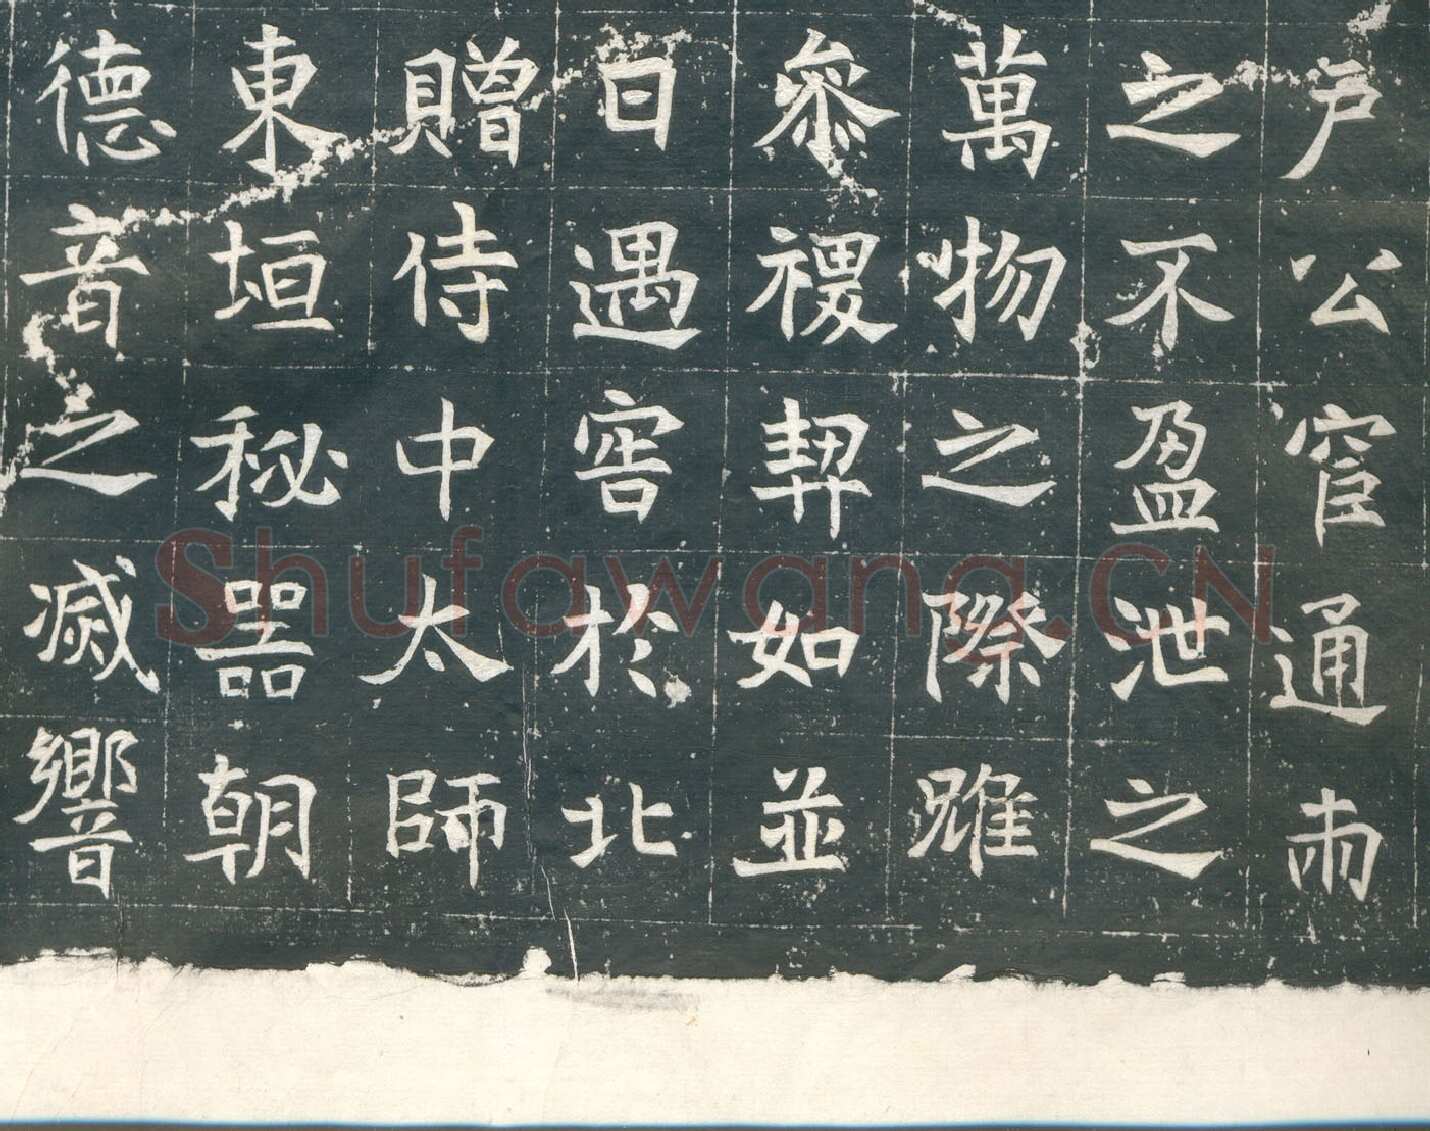 公通
之不盈泄之
萬物之際雖
叅禝契如並
日遇窖於北
贈侍中太師
東垣秘噐朝
德音之滅響
Shufawang.CN